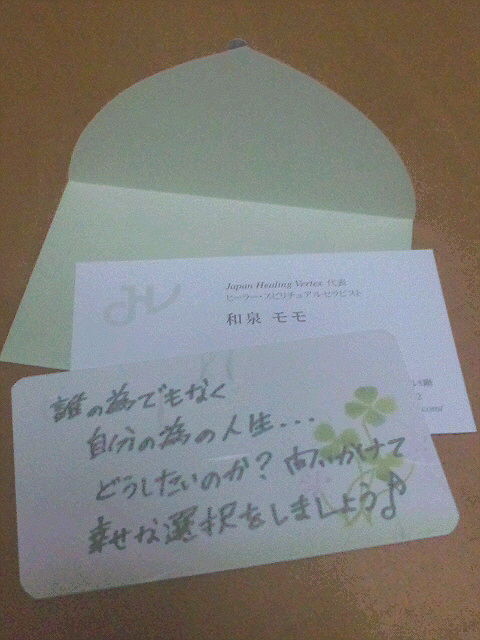 Japan Healing Vertex 代表
ヒーラー・スピリチュアルセラピスト
和泉 モモ
誰の為でもなく
自分の為の人生...
どうしたいのか?問いかけて
幸せな選択をしましょう♪